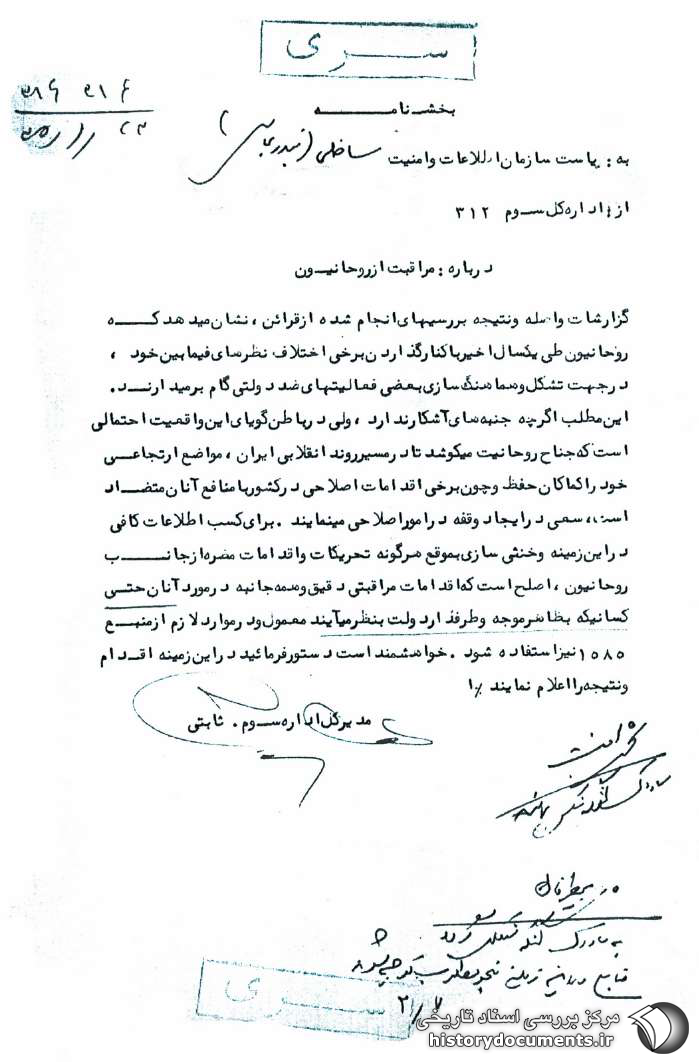 سری
بخشنامه
به : ریاست سازمان اطلاعات و امنیت ساحلی (بندرعباس)
از : اداره کل سوم ۳۱۲
درباره : مراقبت از روحانیون
گزارشات واصله و نتیجه بررسیهای انجام شده از قرائن ، نشان میدهد که
روحانیون طی یکسال اخیر با کنار گذاردن برخی اختلاف نظرهای فیما بین خود ،
در جهت تشکل و هماهنگ سازی بعضی فعالیتهای ضد دولتی گام برمیدارند .
این مطلب اگرچه جنبه های آشکار ندارد ، ولی در باطن گویای این واقعیت احتمالی
است که جناح روحانیت میکوشد تا در مسیر روند انقلابی ایران ، مواضع ارتجاعی
خود را کماکان حفظ و چون برخی اقدامات اصلاحی در کشور با منافع آنان متضاد
است ، سعی در ایجاد وقفه در امور اصلاحی مینمایند . برای کسب اطلاعات کافی
در این زمینه و خنثی سازی بموقع هرگونه تحریکات و اقدامات مضره از جانب
روحانیون ، اصلح است که اقدامات مراقبتی دقیق و همه جانبه در مورد آنان حتی
کسانیکه بظاهر موجه و طرفدار دولت بنظر میآیند معمول و در موارد لازم از منبع
۱۰۸۰ نیز استفاده شود . خواهشمند است دستور فرمائید در این زمینه اقدام
و نتیجه را اعلام نمایند /ا
مدیر کل اداره سوم . ثابتی
سری
مرکز بررسی اسناد تاریخی
historydocuments.ir